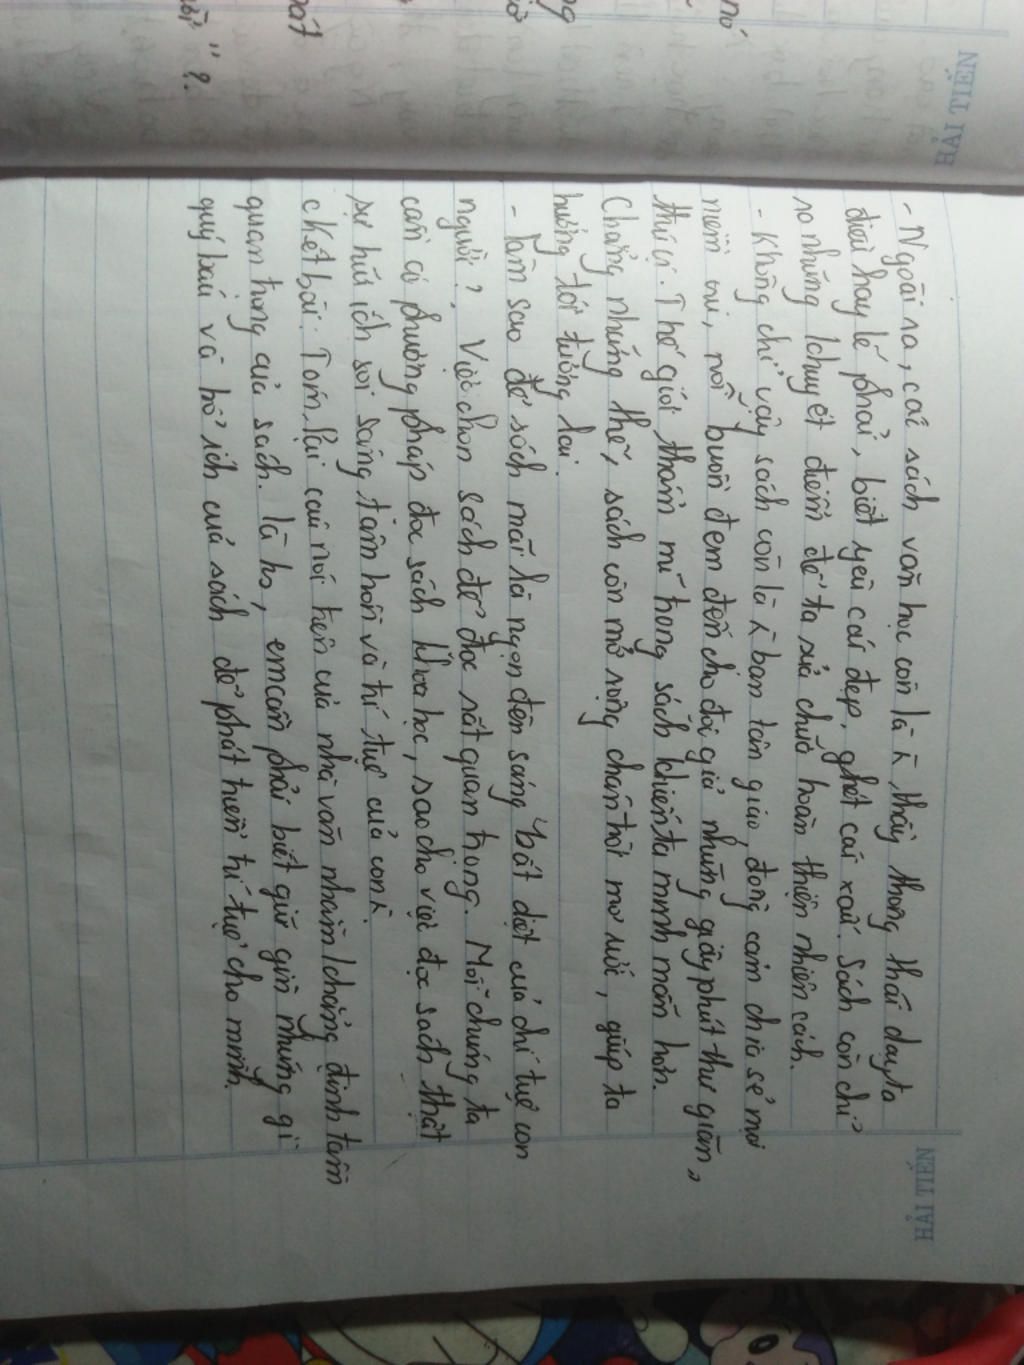 HẢI TIẾN
HẢI TIẾN
nó
ng
" ?
- Ngoài ra, các sách văn học còn là 1 thầy thông thái dạy ta
điều hay lẽ phải, biết yêu cái đẹp, ghét cái xấu. Sách còn chỉ
ra những khuyết điểm để ta sửa chữa hoàn thiện nhiên cách.
- Không chỉ vậy sách còn là 1 bạn tân giao, đồng cảm chia sẻ mọi
niềm vui, nỗi buồn đem đến cho đọc giả những giây phút thư giãn,
thú vị. Thế giới thẩm mĩ trong sách khiến ta minh mẫn hơn.
Chẳng những thế, sách còn mở rộng chân trời mơ ước, giúp ta
hướng tới tương lai.
- Làm sao để sách mãi là ngọn đèn sáng bất diệt của chí tuệ con
người? Việc chọn sách để đọc rất quan trọng. Mỗi chúng ta
cần có phương pháp đọc sách khoa học, sao cho việc đọc sách thật
sự hứu ích soi sáng tâm hồn và trí tuệ của con
c Kết bài: Tóm lại câu nói trên của nhà văn nhằm khẳng định tầm
quan trọng của sách. Là hs, em cần phải biết giữ gìn những gì
quý báu và bổ ích của sách để phát triển trí tuệ cho mình.